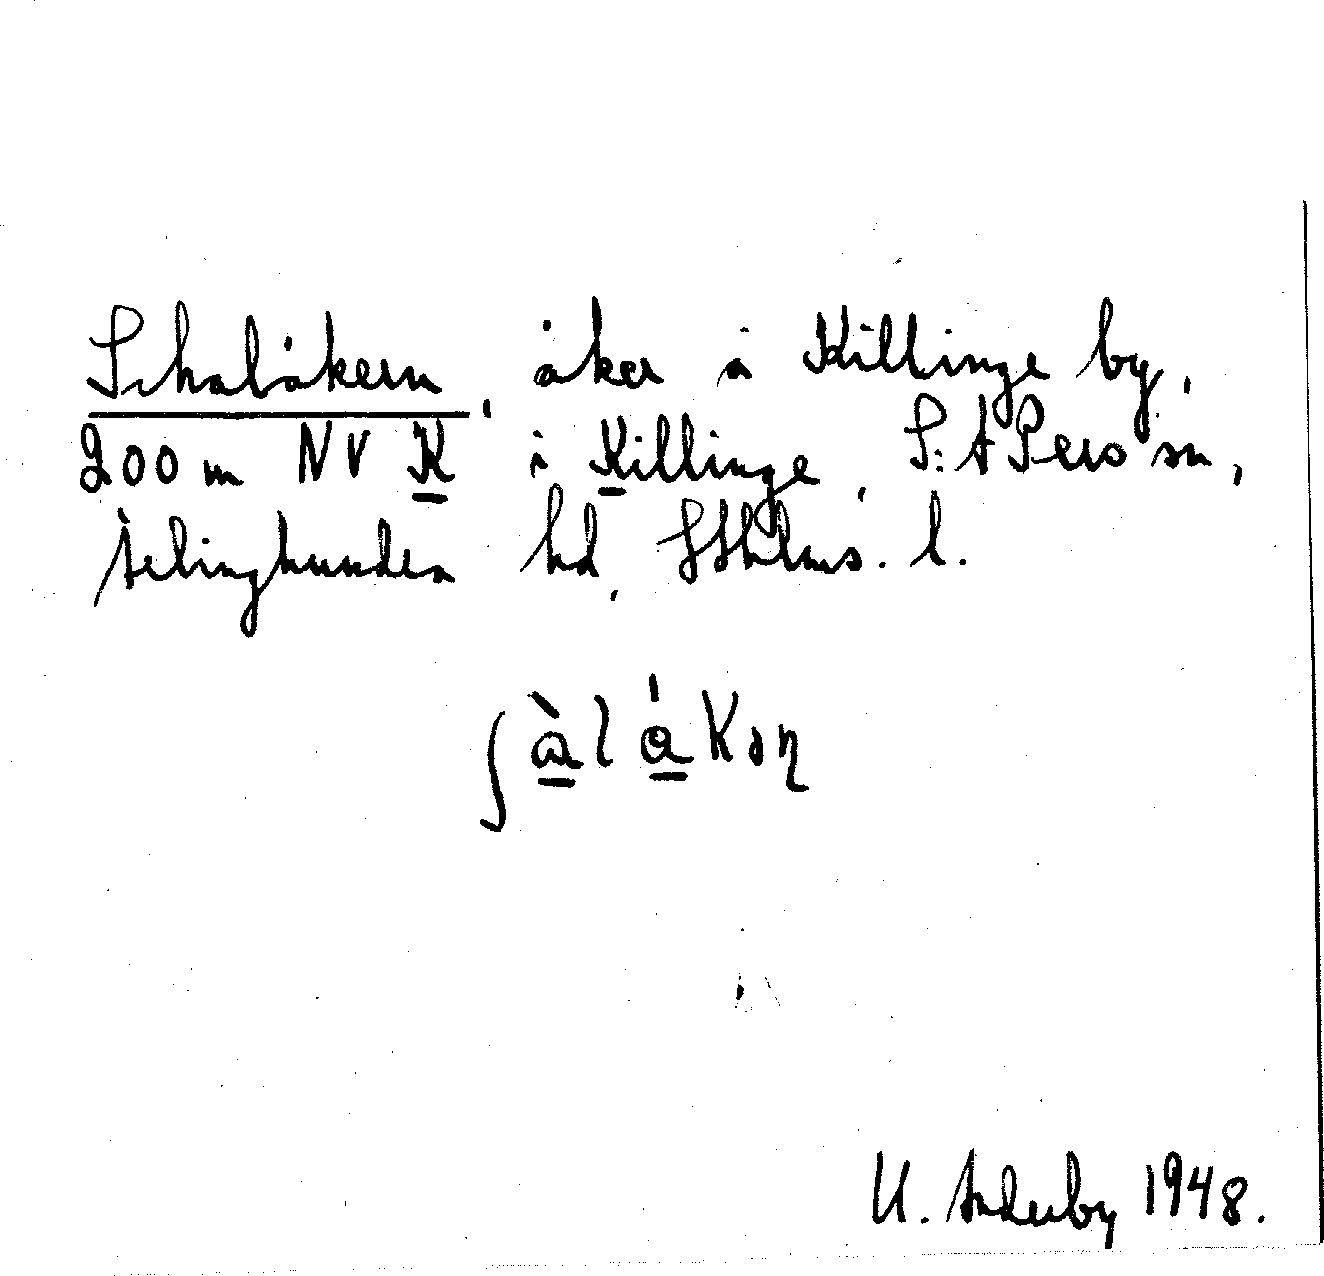 Schalåkern, åker å Killinge by,
200 m NV K i Killinge, S:t Pers sn,
Ärlinghundra hd, Sthlms. l.
ʃàlákəɳ
U. Anderby 1948.